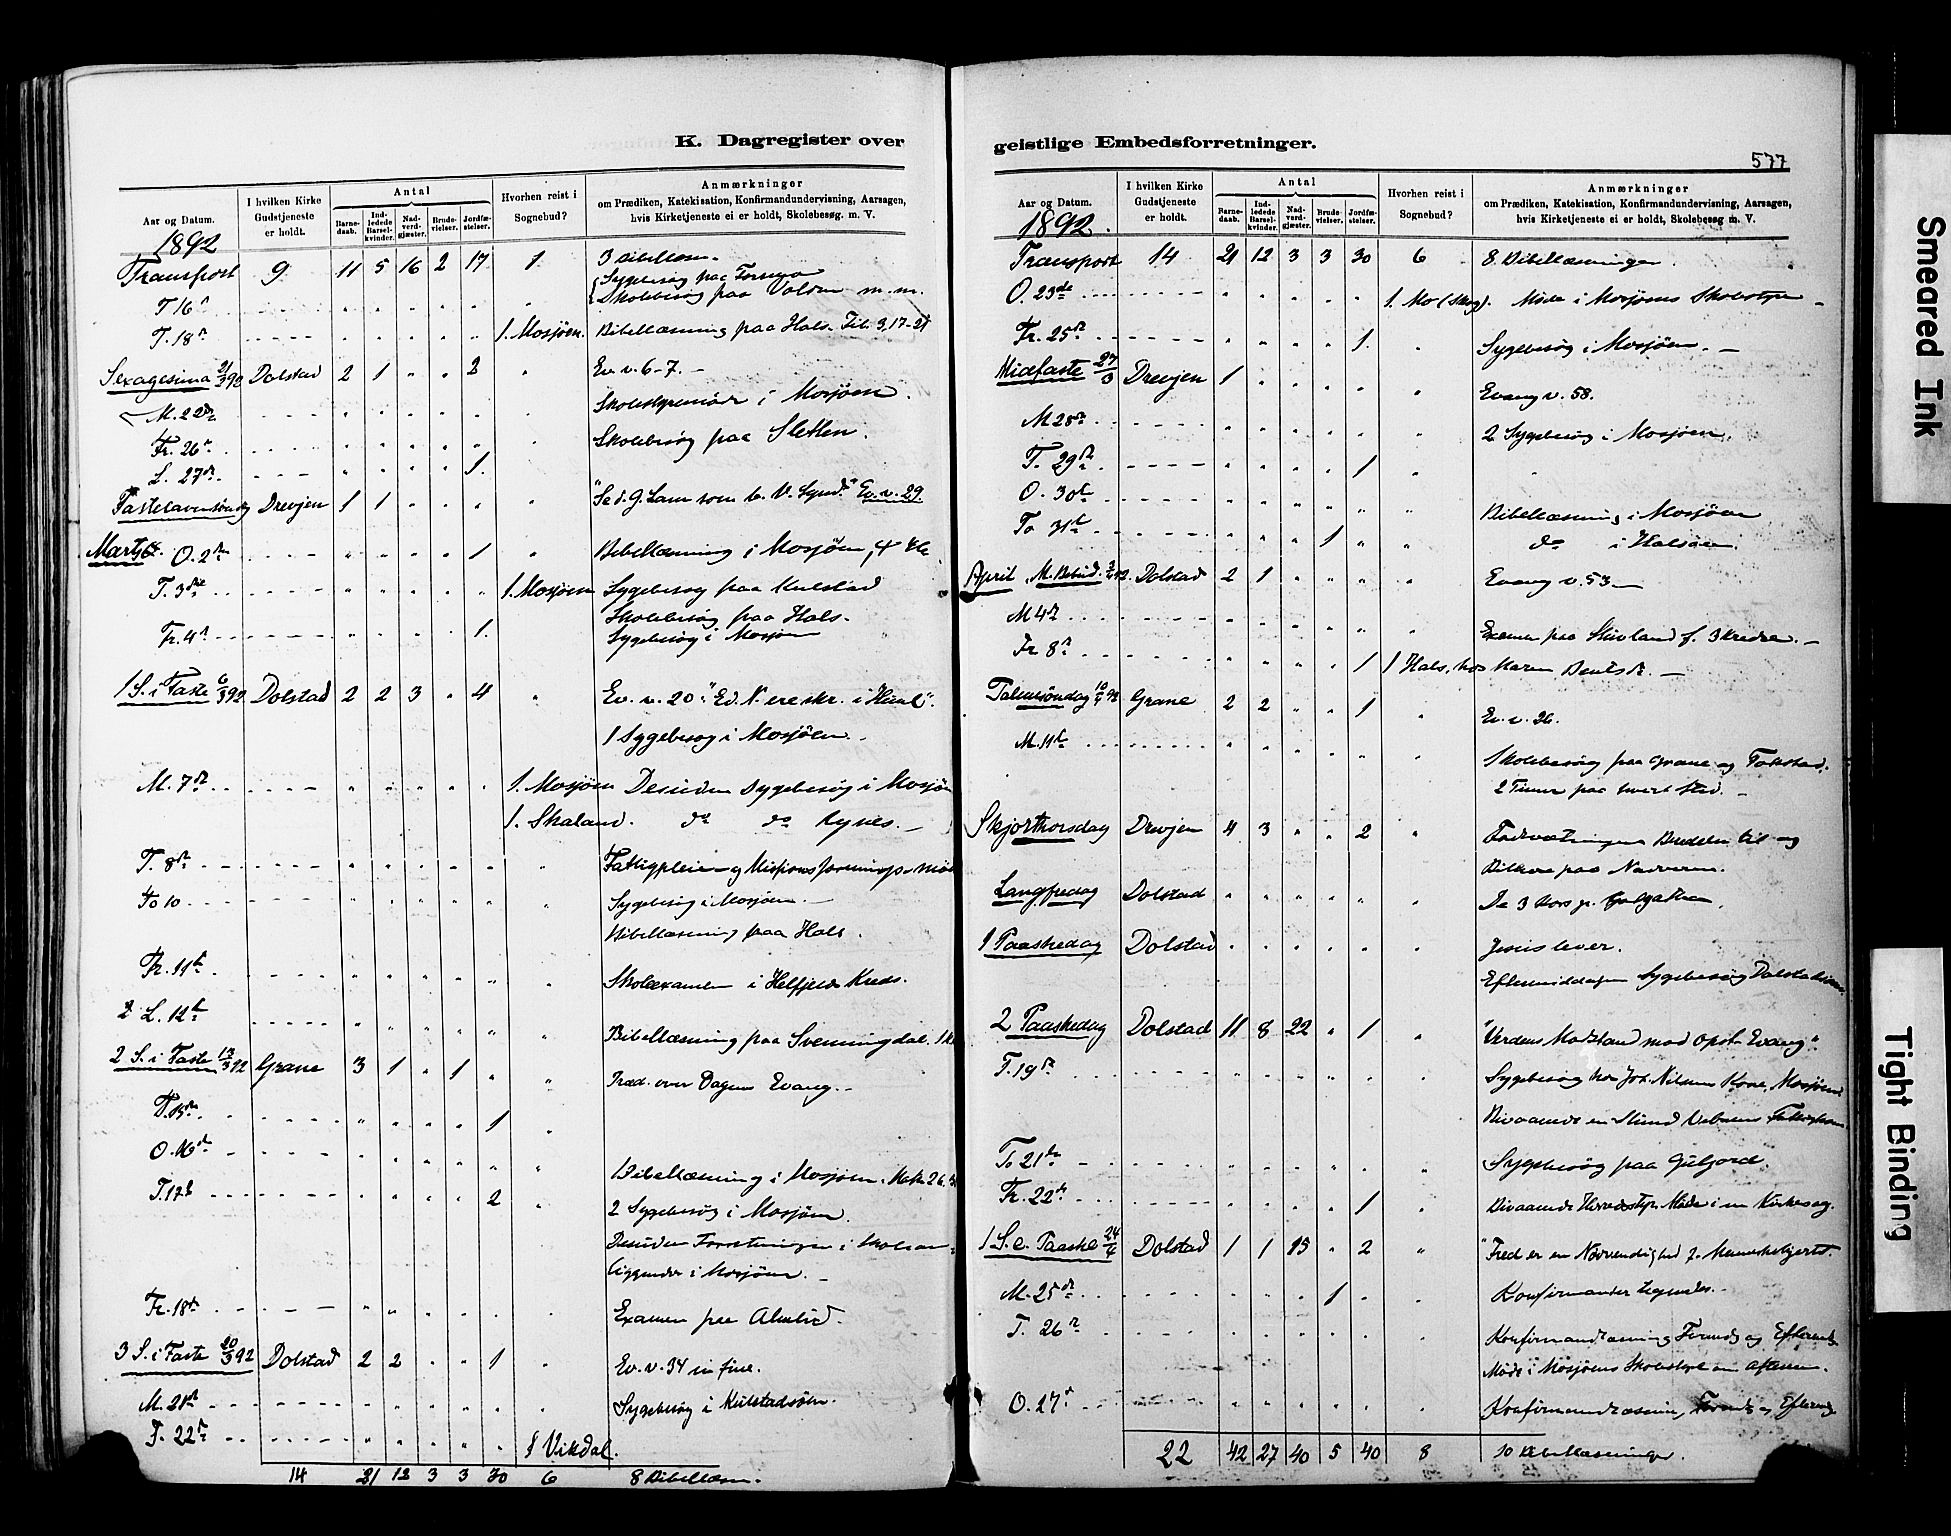 K. Dagregister over
Aar og Datum.
I hvilken Kirke Gudstjeneste er holdt.
Antal
Barnedaab.
Indledede Barselkvinder.
Nadverdgjæster.
Brudevielser.
Jordfæstelser.
Hvorhen reist i Sognebud?
Anmærkninger
om Prædiken, Katekisation, Konfirmandundervisning, Aarsagen,
hvis Kirketjeneste ei er holdt, Skolebesøg. m. V.
1892
Transport 9 11 5 16 2 17 1 3 Bibellæsn.
T 16 Sygebesøg paa
Skolebesøg paa m.m.
T. 18 1. Mosjøen. Bibellæsning paa Hals.
Sexagesima 21/3 92 Dolstad 2 1 2 Ev. v. 6-7. -
M. 22 i Mosjøen.
Fr. 26 Skolebesøg paa Sletten.
L. 27 1.
Fastelavnsöndag Drevjen 1 1 "Se d. G. Lam som b. V. Synd." Ev. v. 29.
Marts O. 2 1 Bibellæsning i Mosjøen,
T. 3die 1. Mosjøen Sygebesøg paa Kulstad
Skolebesøg paa Hals.
Fr. 4 1. Sygebesøg i Mosjøen
1 S. i Faste 6/3 92 Dolstad 2 2 3 4 Ev. v. 20.
1 Sygebesøg i Mosjöen.
M. 7 1. Mosjøen Desuden Sygebesøg i Mosjøen
1. Skaland. do do
T. 8
To 10 Sygebesøg i Mosjøen.
Bibellæsning paa Hals.
Fr. 11te Skoleexamen i Helfjelds Kreds.
L. 12te Bibellæsning paa Svenningdal.
2 S. i Faste 13/3 92 Grane 3 1 1 Præd. over Dagens Evang. -
T. 15 1
O. 16 Bibellæsning i Mosjøen.
T. 17 2 2 Sygebesøg i Mosjøen.
Desuden Forretninger i
liggender i Mosjøen. -
Fr. 18 Examen paa Almlid.
3 S. i Faste 20/3 92 Dolstad 2 2 1 Ev. v. 34 in fine.
M. 21 Sygebesøg i Kulstadsöen.
T. 22 1 Vikdal.
14 21 12 3 3 30 6 8 Bibellæsn.
geistlige Embedsforretninger.
577
Aar og Datum.
I hvilken Kirke Gudstjeneste er holdt.
Antal
Barnedaab.
Indledede Barselkvinder.
Nadverdgjæster.
Brudevielser.
Jordfæstelser.
Hvorhen reist i Sognebud?
Anmærkninger
om Prædiken, Katekisation, Konfirmandundervisning, Aarsagen,
hvis Kirketjeneste ei er holdt, Skolebesøg m. V.
1892.
Transport 14 21 12 3 3 30 6 8 Bibellæsninger.
O. 23de 1. Mo (Skog). Møde i Mosjøens Skolestyre
Fr. 25 1. Sygebesøg i Mosjøen. -
Midfaste 27/3 Drevjen 1 Evang v. 58.
M 28 2 Sygebesøg i Mosjøen.
T. 29 1
O. 30te Bibellæsning i Mosjøen
To 31te 1 do i Halsøen.
April M. Bebud. 3/4 92. Dolstad 2 1 Evang v. 53 -
M 4 Examen paa f. 3 Kredse. -
Fr 8 1 1 Hals, hos Maren -
Palmesöndag 10/4 92 Grane 2 2 1 Ev. v. 26.
M. 11te Skolebesøg paa Grane og
2 Timer paa hvert Sted. -
Skjærthorsdag Drevjen 4 3 2 Fodvætningen Budskab til og
paa Nadveren.
Langfredag Dolstad De 3 Kors p. Golgatha.
1 Paaskedag Dolstad Jesus lever.
Eftermiddagen Sygebesøg
2 Paaskedag Dolstad 11 8 22 1 "Verdens Modstand mod Opst. Evang".
T. 19 Sygebesøg hos Joh. Nilsen Mosjøen
Bivaanede en Stund
To 21 Sygebesøg paa
Fr. 22 1 Bivaanede Herredsstyr. Møde i en Kirkesag.
1 S. e. Paaske 24/4 Dolstad 1 1 15 2 "Fred er en Nødvendighed f. Menneskehjertet.
M. 25 1 Konfirmander
T. 26 Konfirmandlæsning Formd. og Efterm.
Møde i Mosjøens Skolestyre om Aftenen.
O. 27 Konfirmandlæsning Formd. og Efterm.
22 42 27 40 5 40 8 10 Bibellæsninger
Smeared Ink
Tight Binding